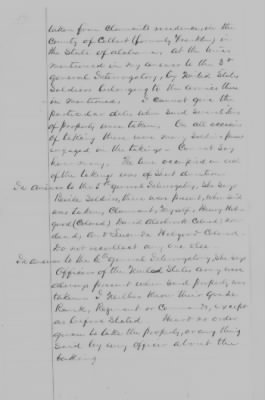 taken from Claimants residence, in the
County of Colbert (formerly Franklin) in
the State of Alabama, At the times
mentioned in my answer to the 3rd
general Interrogatory, by United States
Soldiers belonging to the service there
in mentioned, I cannot give the
particular dates when said
of property were taken, On all occasions
of taking there were many soldiers
engaged in the taking - Cannot say
how many. The time occupied in each
of the takings was of short duration
In Answer to the 5th general Interrogatory, She Says
Beside Soldiers, there were present, when said
was taken, Claimant, Myself,
(Colored) Colored
and Colored.
Do not recollect any one else.
In Answer to the 6th general Interrogatory, She Says
Officers of the United States army were
always present when said property was
taken I Neither Know their Grade
Rank, Regiment or Command, except
as before Stated Heard no order
given to take the property, or any thing
said by any officer about the
taking